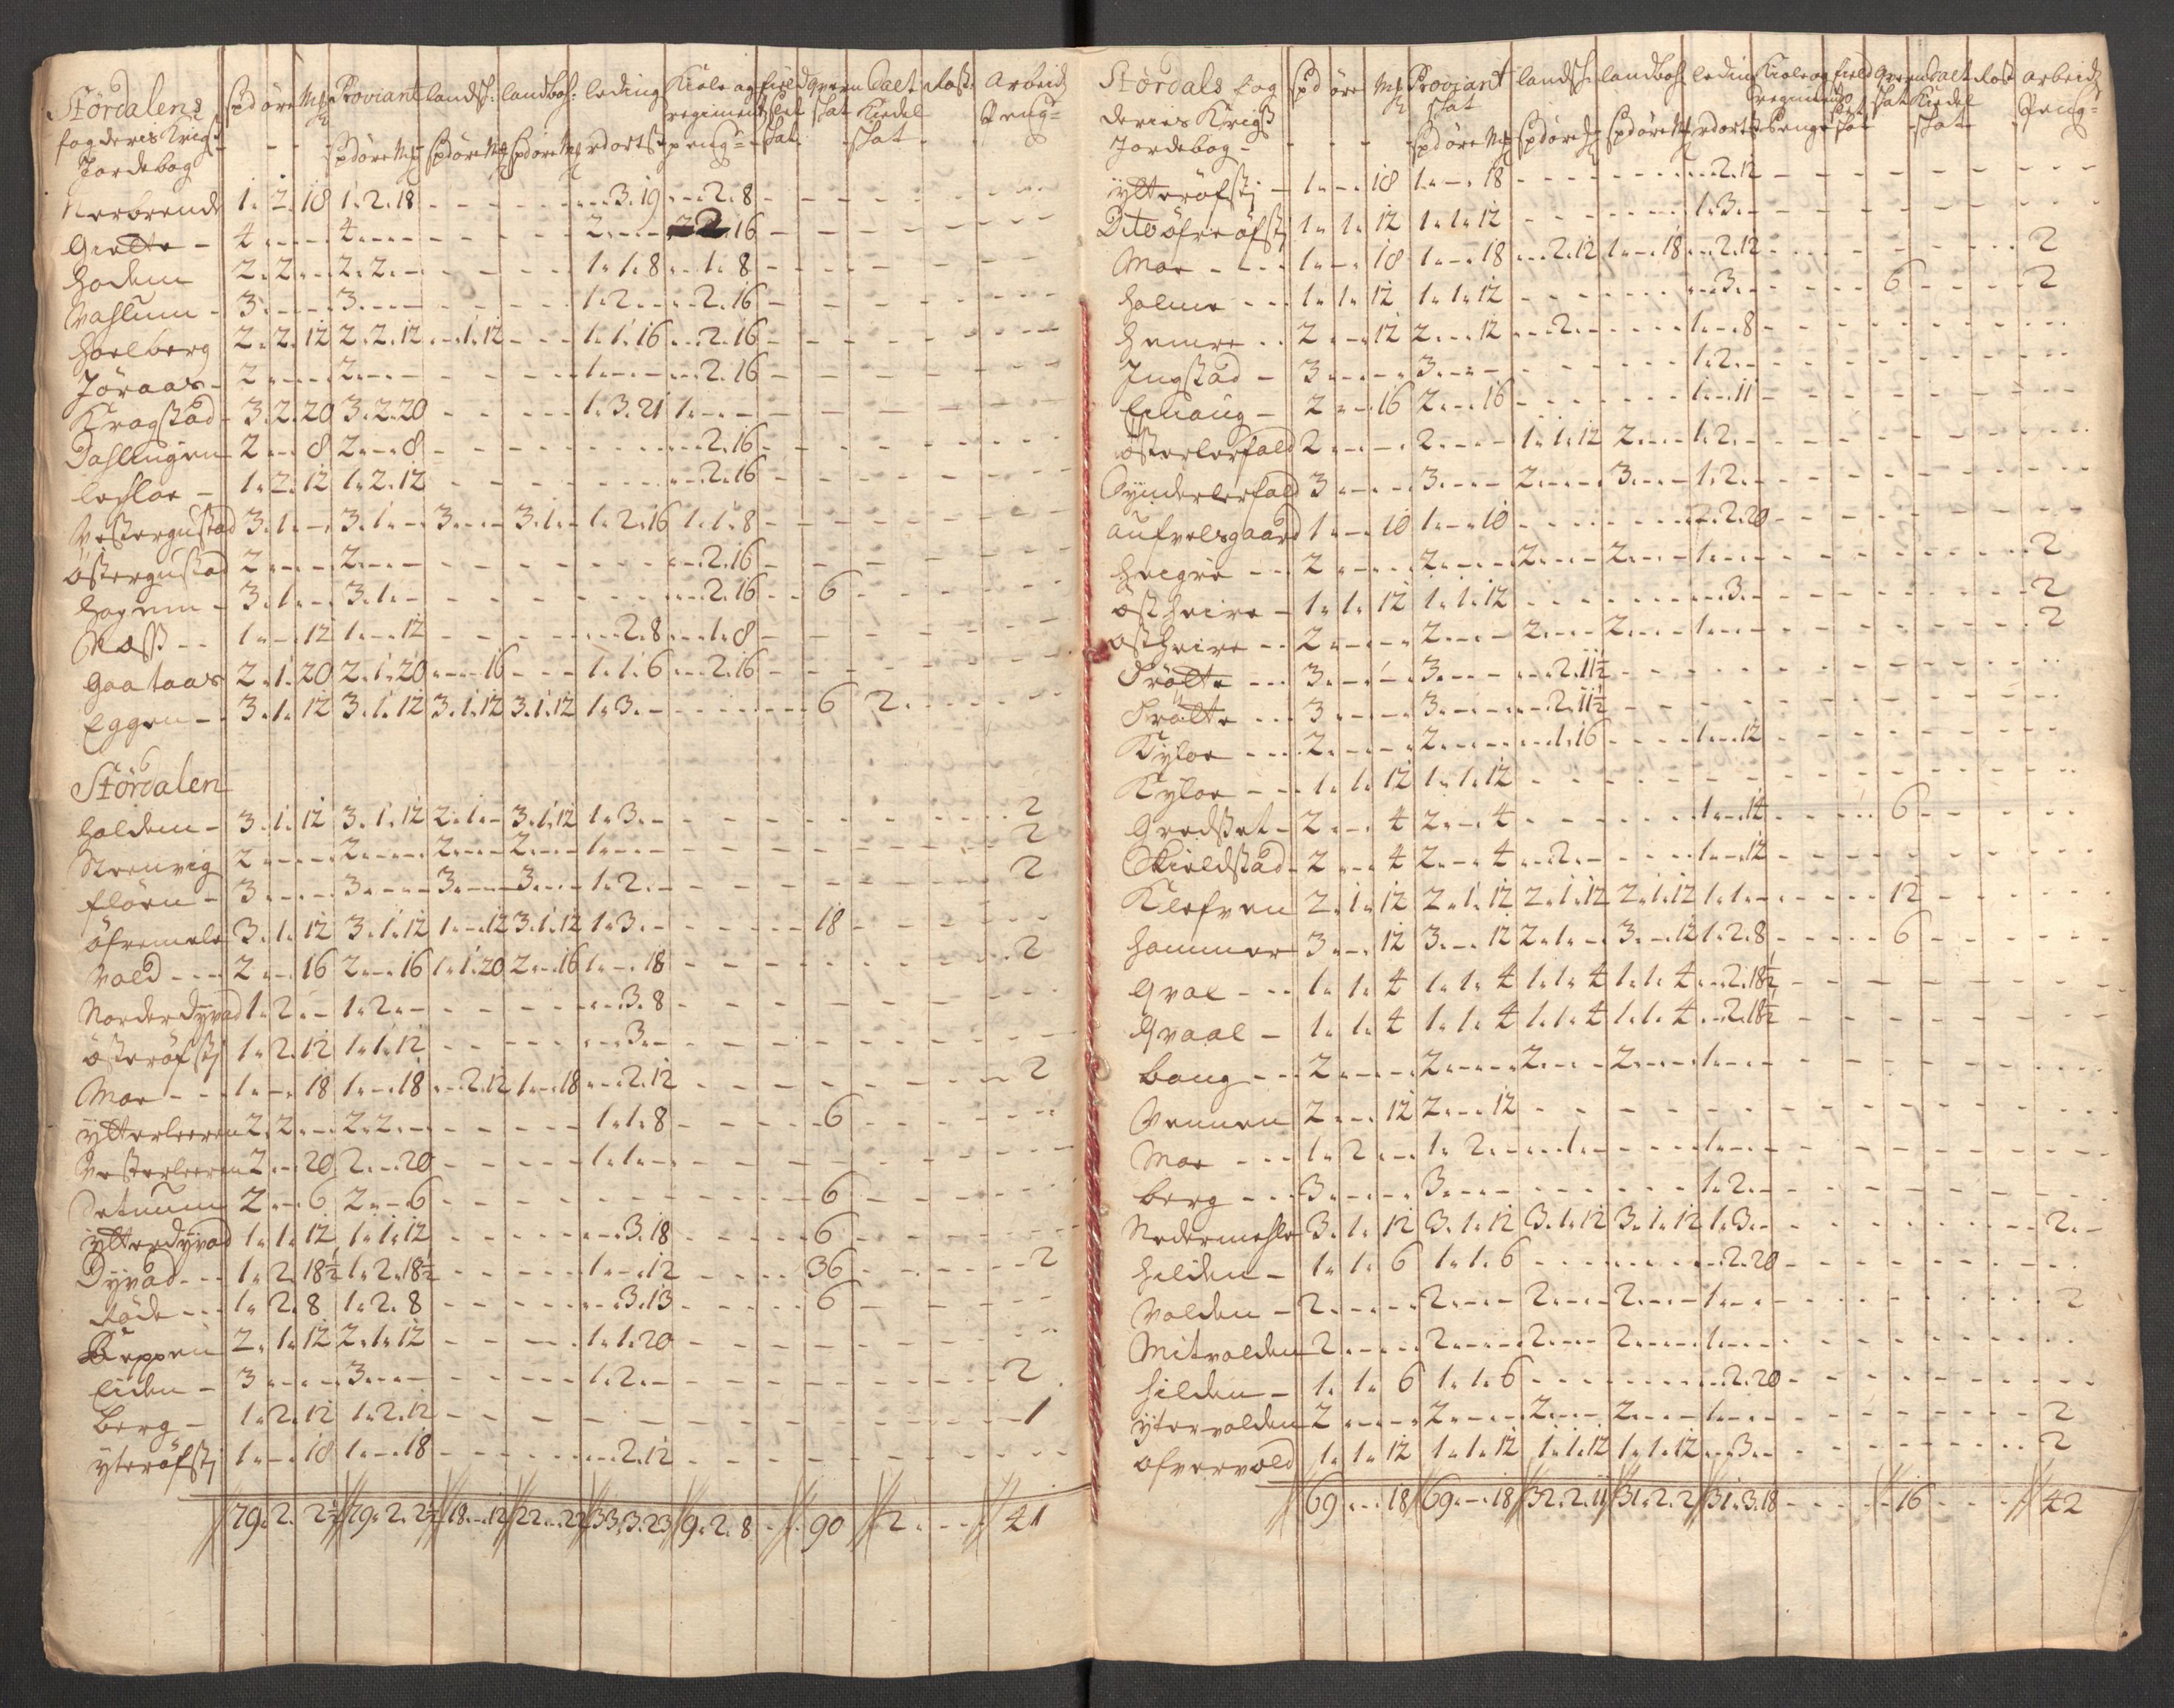 Stördalens
fogderis Krigs
Jordebog
spd öre Mk Proviant landsk: landboh: leding Kiole og field qvern salt Rost: Arbeids
regiment slet skat Kiedel Peng=
spdöre Mk spdöre Mk spdöre Mk rdort sk peng= skat skat
1. 2. 18 1. 2. 18 - - - 3. 19 - - 2. 8
Gielte - 4 - - - 4 - - - 2 - - - 2. 16
Hodem 2. 2 - - 2. 2. - 1. 1. 8 - - 1. 8
Vahlum - 3 - - - 3 - - - 1. 2 - - - 2. 16
Hoelberg 2. 2. 12 2. 2. 12 - 1. 12 - - 1. 1. 16 - - 2. 16
Jöraas - 2 - - - 2 - - - 1 - - - - 2. 16
Kragstad - 3. 2. 20 3. 2. 20 - - - 1. 3. 21 1 - - -
Dahlingen 2 - - 8 2 - - 8 - - - - 2. 16
Lehloe - 1. 2. 12 1. 2. 12 - - - - 2. 16
Vestergustad 3. 1. - 3. 1. - 3. - - 3. 1. - 1. 2. 16 1. 1. 8
Östergustad 2 - - - 2 - - - - - 2. 16
Hognem - 3. 1. - 3. 1. - - - - 2. 16 - - 6
Mæhs - - 1. - 12 1. - 12 - - - 2. 8 - - 1. 8
Gaataas 2. 1. 20 2. 1. 20 - - 16 - - 1. 1. 6 - - 2. 16
Eggen - 3. 1. 12 3. 1. 12 3. 1. 12 3. 1. 12 1. 3. - - - - 6 2.
Stördalen
Holdem - 3. 1. 12 3. 1. 12 2. 1. - 3. 1. 12 1. 3. - - - 2
Strenvig 2 - - - 2 - - - 2 - - - 2 - - - 1 - - - 2
Flören - 3 - - - 3 - - - 3 - - - 3 - - - 1. 2. - - 2
Öfremele 3. 1. 12 3. 1. 12 1. - 12 3. 1. 12 1. 3. - - - 18
Vold - - 2. - 16 2. - 16 1. 1. 20 2. - 16 1. - 18 - - - 2
Norderdyvad 1. 2. - 1. 2. - - - - 3. 8
Österöfsti 1. 2. 12 1. 1. 12 - - - 3. -
Moe - - 1. - 18 1. - 18 - 2. 12 1. - 18 - 2. 12 - - - 2
Ytterleeren 2. 2. - 2. 2. - - - 1. 1. 8 - - 6
Vesterleeren 2. - 20 2. - 20 - - - 1. 1. -
2. - 6 2. - 6 - - - - 6
Ytterdyvad 1. 1. 12 1. 1. 12 - - - 3. 18 - - 6
Dyvad - - 1. 2. 18½ 1. 2. 18½ - - - 1. - 12 - - 36 - - 2
Röde - - 1. 2. 8 1. 2. 8 - - - 3. 13 - - 6
Reppen 2. 1. 12 2. 1. 12 - - - 1. 1. 20
Eiden - 3 - - - 3 - - - 1. 2. - - - 2
Berg - 1. 2. 12 1. 2. 12 - - - - 1
Yteröfsti 1. - 18 1. - 18 - - - 2. 12
79. 2. 2½ 79. 2. 2½ 18. - 12 22. - 22 33. 3. 23 9. 2. 8 - 90 2 - - 41
Stördals fog
deries Krigs
Jordebog -
spd öre Mk Proviant landsk: landboh: leding Kiole og field qvern salt Rost arbeids
skat regiment slet skat Kiedel Peng=
spdöre Mk spdöre Mk spdöre Mk rdort sk Penge skat skat
Ytteröfsti - 1. - 18 1. - 18 - - - 2. 12
Dito öfreöfsti 1. 1. 12 1. 1. 12 - - - 1. 3. -
Moe - - - 1. - 18 1. - 18 - 2. 12 1. - 18 - 2. 12 - - - 2
Holme - - 1. 1. 12 1. 1. 12 - - - 3. - - 6 - - 2
Hemre - - 2. - 12 2. - 12 - 2. - - - 1. - 8
Ingstad - 3 - - - 3 - - - 1. 2. -
2. - 16 2. - 16 - - - 1. - 11
Österlerfald 2 - - - 2 - - - 1. 1. 12 2 - - - 1. 2. -
Synderlerfald 3 - - - 3 - - - 2 - - - 3 - - - 1. 2. -
Aufvelsgaard 1. - 10 1. - 10 - - - 2. 20
Hegre - - 2 - - - 2 - - - 2 - - - 2 - - - 1 - - - 2
Östheire - 1. 1. 12 1. 1. 12 - - - 3. - - 2
Östheire - - 2 - - - 2 - - - 2 - - - 2 - - - 1 - - - 2
Trötte - - 3 - - - 3 - - - 2. 11½
Trötte - - 3 - - - 3 - - - 2. 11½
Kyloe - - 2 - - - 2 - - - 1. 16 - - 1. - 12
Kyloe - - 1. 1. 12 1. 1. 12
Gredset - 2. - 4 2. - 4 - - - 1. - 14 - - 6
Skieldstad - 2. - 4 2. - 4 - 2. - - - 1. - 12
Klefven 2. 1. 12 2. 1. 12 2. 1. 12 2. 1. 12 1. 1. - - - 12
Hammer 3. - 12 3. - 12 2. 1. - 3. - 12 1. 2. 8 - - 6
Qval - - 1. 1. 4 1. 1. 4 1. 1. 4 1. 1. 4 - 2. 18½
Qvaal - 1. 1. 4 1. 1. 4 1. 1. 4 1. 1. 4 - 2. 18½
Boug - - 2 - - - 2 - - - 2 - - - 2 - - - 1 - - -
Vennen 2. - 12 2. - 12
Moe - - 1. 2. - 1. 2. - - 1. - - - 1 - - -
Berg - - 3 - - - 3 - - - 1. 2. -
Nedermehle 3. 1. 12 3. 1. 12 3. 1. 12 3. 1. 12 1. 3. - - - 2. -
Hilden - 1. 1. 6 1. 1. 6 - - - 2. 20
Volden - 2 - - - 2 - - - 2 - - - 2 - - - 1 - - - 2
Mitvolden 2 - - - 2 - - - 2 - - - 2 - - - 1 - - -
Hilden - 1. 1. 6 1. 1. 6 - - - 2. 20
Ytervolden 2 - - - 2 - - - 2 - - - 2 - - - 1 - - - 2
Öfvervold 1. 1. 12 1. 1. 12 1. 1. 12 1. 1. 12 - 3. - - - 2
69. - 18 69. - 18 32. 2. 11 31. 2. 2 31. 3. 18 - - 16 - - 42